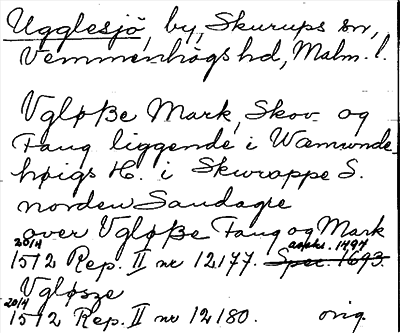 Ugglesjö, by, Skurups sn,
Vemmenhögs hd, Malm. l.
Vgløße Mark, Skov og
Fang liggende i Wæmunde-
høigs H. i Skuroppe S.
norden Sandagre
over Vgløße Fang og Mark
20/4 1512 Rep. II nr 12177. Spec. 1693.
Vgløsze
20/4 1512 Rep. II nr 12180. orig.